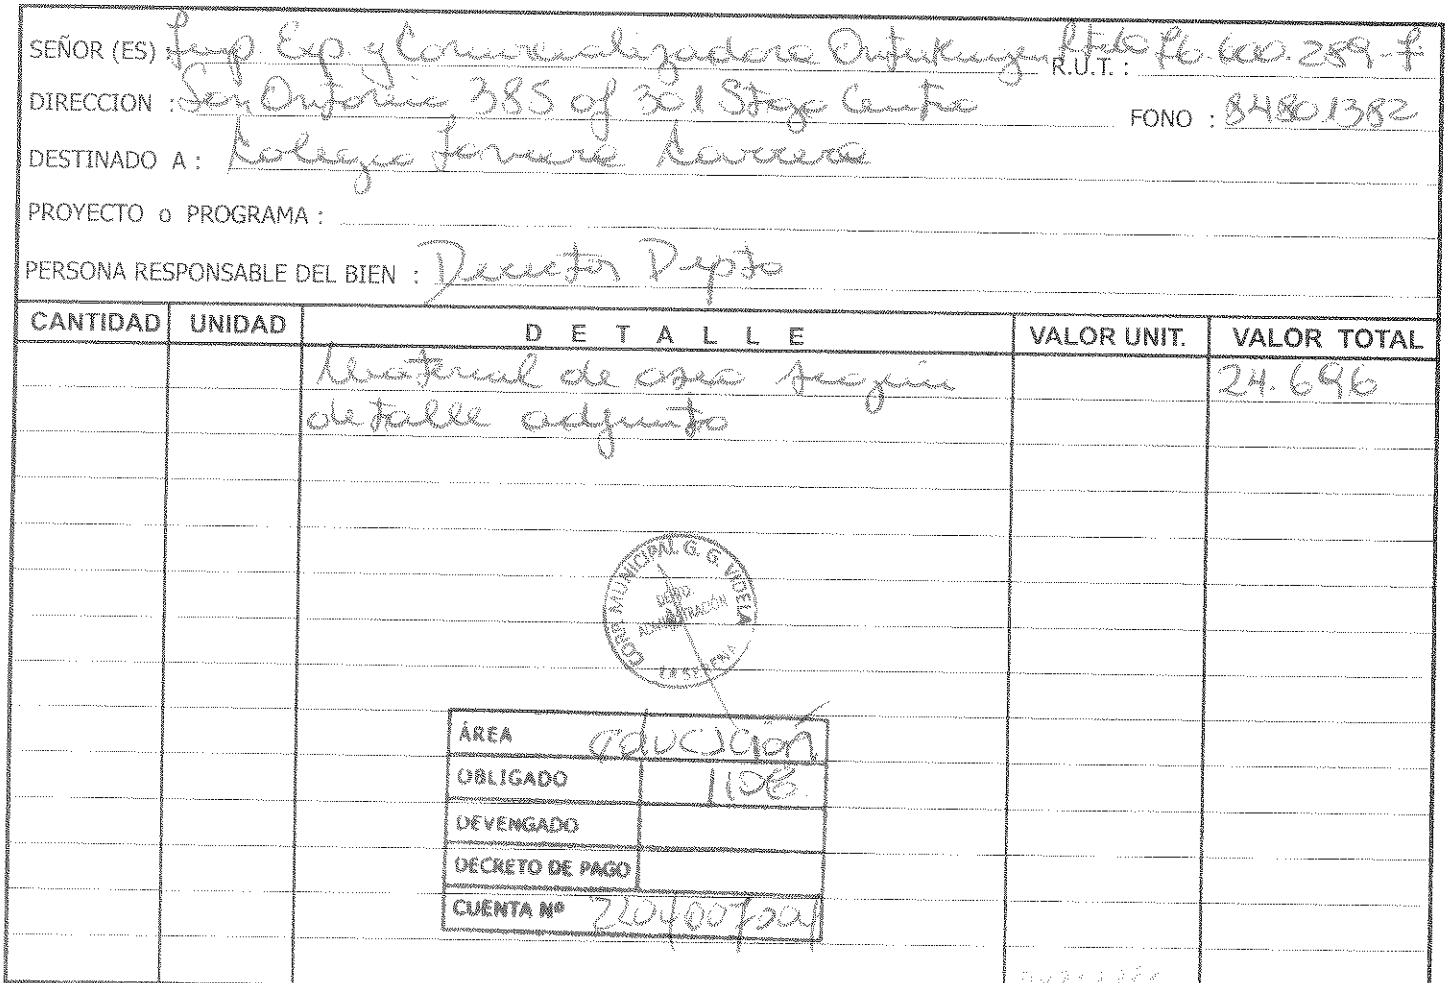 SEÑOR (ES) : Imp. Exp. y Comercializadora Ltda R.U.T. :
DIRECCION : San Antonio 385 of 301 Stgo Centro FONO : 84801382
DESTINADO A : Colegio Javiera Carrera
PROYECTO o PROGRAMA :
PERSONA RESPONSABLE DEL BIEN : Director Depto
CANTIDAD UNIDAD D E T A L L E VALOR UNIT. VALOR TOTAL
Material de aseo según 24.696
detalle adjunto
CORP. MUNICIPAL G. G. VIDELA
DEPTO.
ADMINISTRACIÓN
LA SERENA
ÁREA educación
OBLIGADO 1106
DEVENGADO
DECRETO DE PAGO
CUENTA Nº